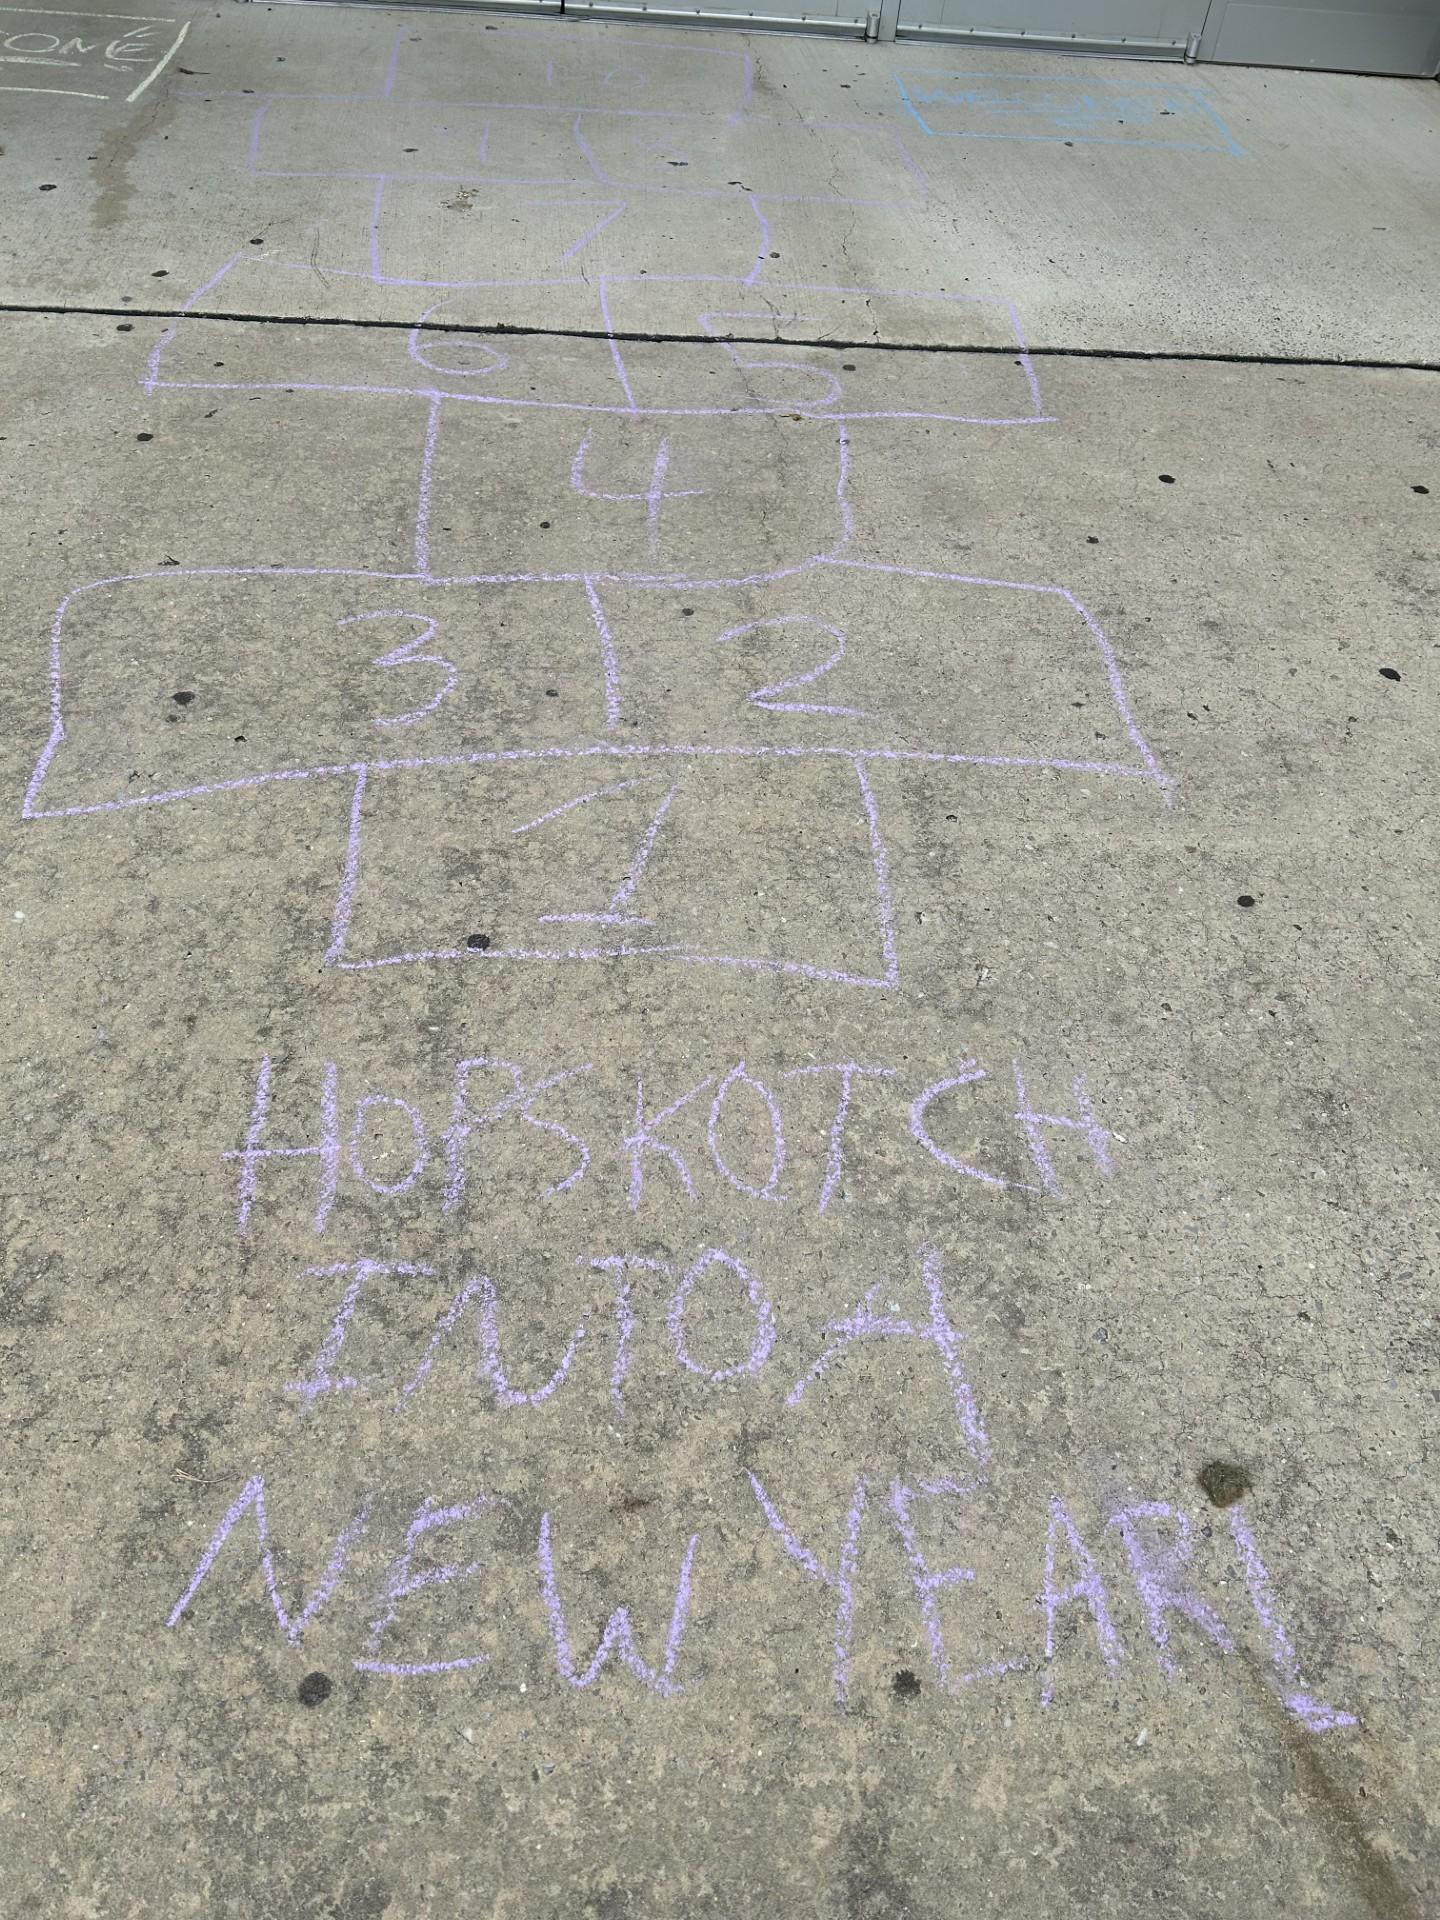 ONE
10
8
7
6 5
4
3 2
1
HOPSKOTCH
INTO A
NEW YEAR!